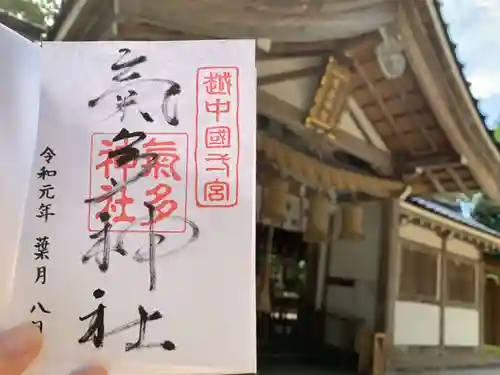 越中國弌宮
氣多神社
氣多
神社
令和元年 葉月 八日